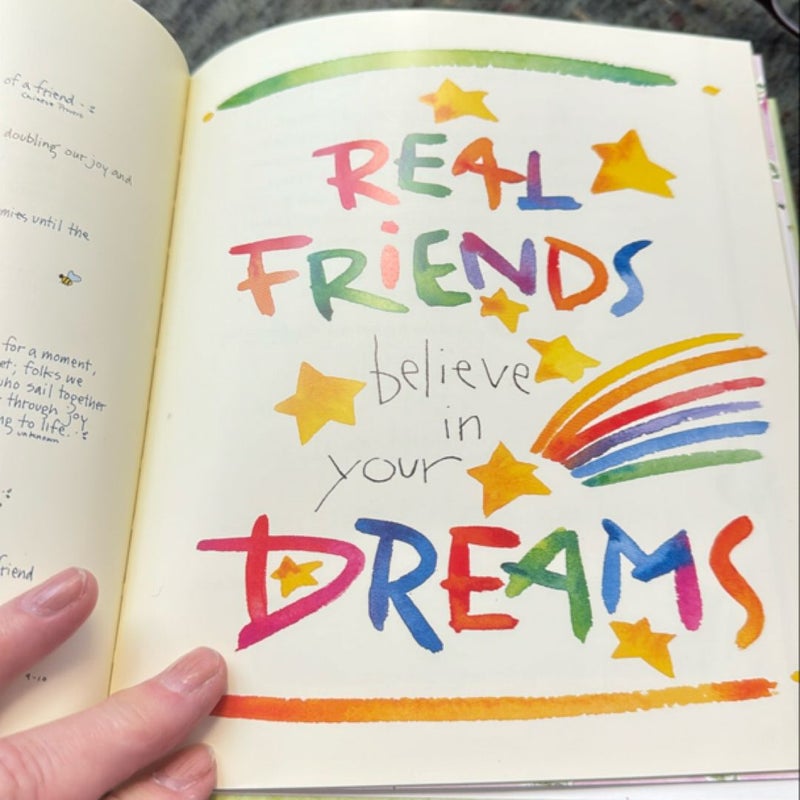 of a friend
Chinese Proverb
doubling our joy and
until the
for a moment,
folks we
who sail together
through joy
to life.
unknown
friend
4-10
REAL
FRiENDS
believe
in
your
DREAMS